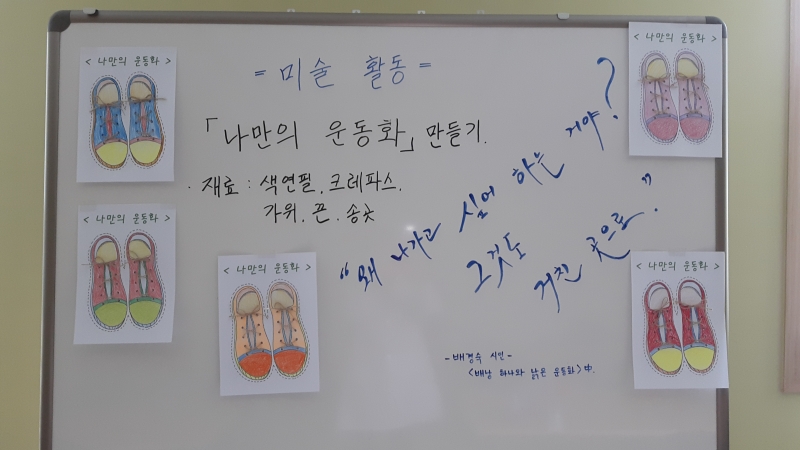 = 미술 활동 =
「나만의 운동화」 만들기.
· 재료 : 색연필, 크레파스,
가위, 끈, 송곳
"왜 나가고 싶어 하는 거야?
그것도
거친 곳으로."
- 배경숙 시인 -
<배낭 하나와 낡은 운동화> 中.
< 나만의 운동화 >
< 나만의 운동화 >
< 나만의 운동화 >
< 나만의 운동화 >
< 나만의 운동화 >